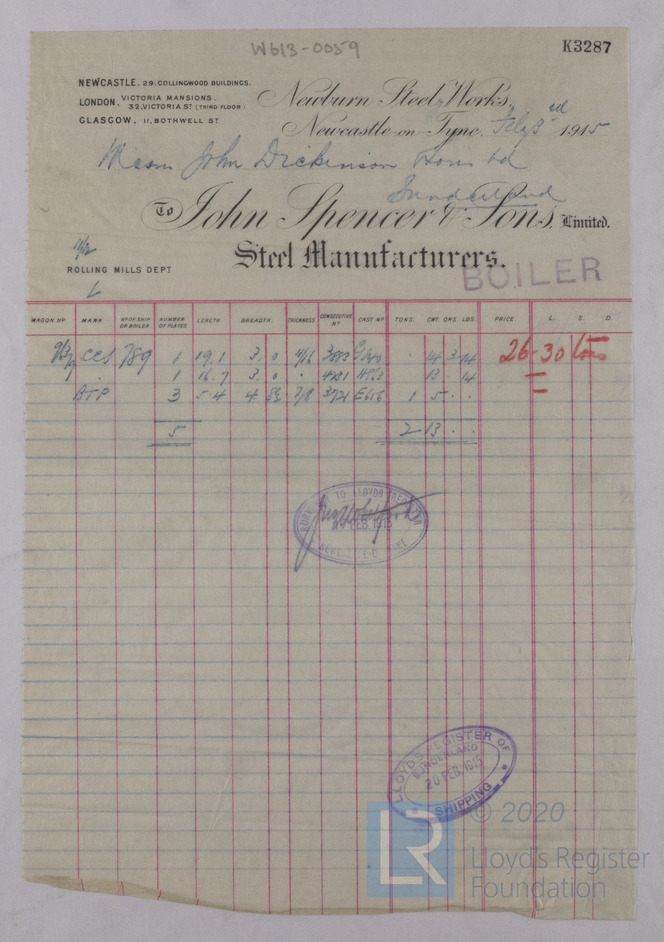 W613-0059
K3287
NEWCASTLE. 29, COLLINGWOOD BUILDINGS.
LONDON. VICTORIA MANSIONS, 32, VICTORIA ST (THIRD FLOOR)
GLASGOW. 11, BOTHWELL ST
Newburn Steel Works,
Newcastle-on-Tyne, Feby 3rd 1915
Messrs John Dickinson Sons Ltd
Sunderland
To John Spencer & Sons, Limited.
Steel Manufacturers.
ROLLING MILLS DEPT
BOILER
WAGON No MARK No OF SHIP OR BOILER NUMBER OF PLATES LENGTH. BREADTH. THICKNESS CONSECUTIVE No CAST No TONS. CWT QRS. LBS. PRICE. L. S. D.
CCS 789 1 19.1 3. 0 11/16 14 3 14 26-30 tons
. 1 16.7 3. 0 . 13 . 14
BTP 3 5.4 4 7/8 3721 E656 1 5 . .
5 2 13 . .
TO LLOYD'S REGISTER
FEB. 1915
LLOYD'S REGISTER OF SHIPPING
SUNDERLAND
20 FEB. 1915
LR © 2020
Lloyd's Register
Foundation